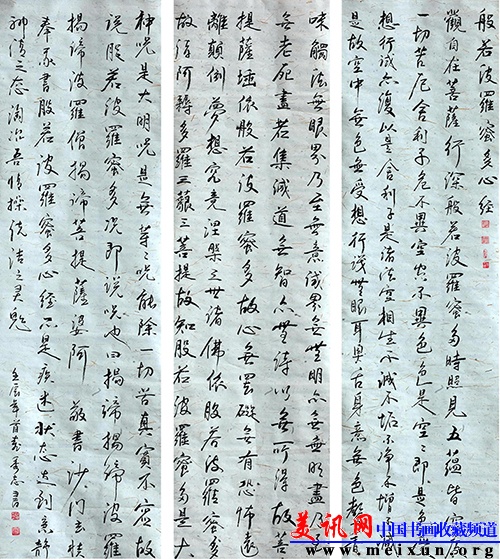 般若波羅蜜多心經
觀自在菩薩行深般若波羅蜜多時照見五蘊皆空度
一切苦厄舍利子色不異空空不異色色即是空空即是色受
想行識亦復以是舍利子是諸法空相生不滅不垢不净不增減
是故空中無色無受想行識無眼耳鼻舌身意無色聲香
味觸法無眼界乃至無意識界無無明亦無無明盡乃至
無老死盡苦集滅道無智亦無得以無所得故菩
提薩埵依般若波羅蜜多故心無罣礙無有恐怖遠
離顛倒夢想究竟涅槃三世諸佛依般若波羅蜜多
故得阿耨多羅三藐三菩提故知般若波羅蜜多是大
神咒是大明咒是無等等咒能除一切苦真實不虛故
說般若波羅蜜多咒即說咒也曰揭諦揭諦波羅
揭諦波羅僧揭諦菩提薩婆阿 敬書沙門玄奘
奉承書般若波羅蜜多心經不是疾速狀态达到意静
神之态陶冶吾情操法之灵魁
壬辰年首秀志書
美讯网 中国书画收藏频道
www.meixun.org